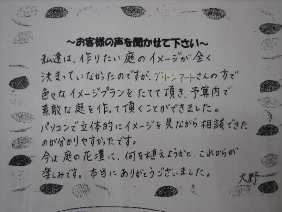 ～お客様の声を聞かせて下さい～
私達は、作りたい庭のイメージが全く
決まっていなかったのですが、グリーンアートさんの方で
色々なイメージプランをたてて頂き、予算内で
素敵な庭を作って頂くことができました。
パソコンで立体的にイメージを見ながら相談できた
のが分かりやすかったです。
今は庭の花壇に、何を植えようかと、これからが
楽しみです。本当にありがとうございました。
大野